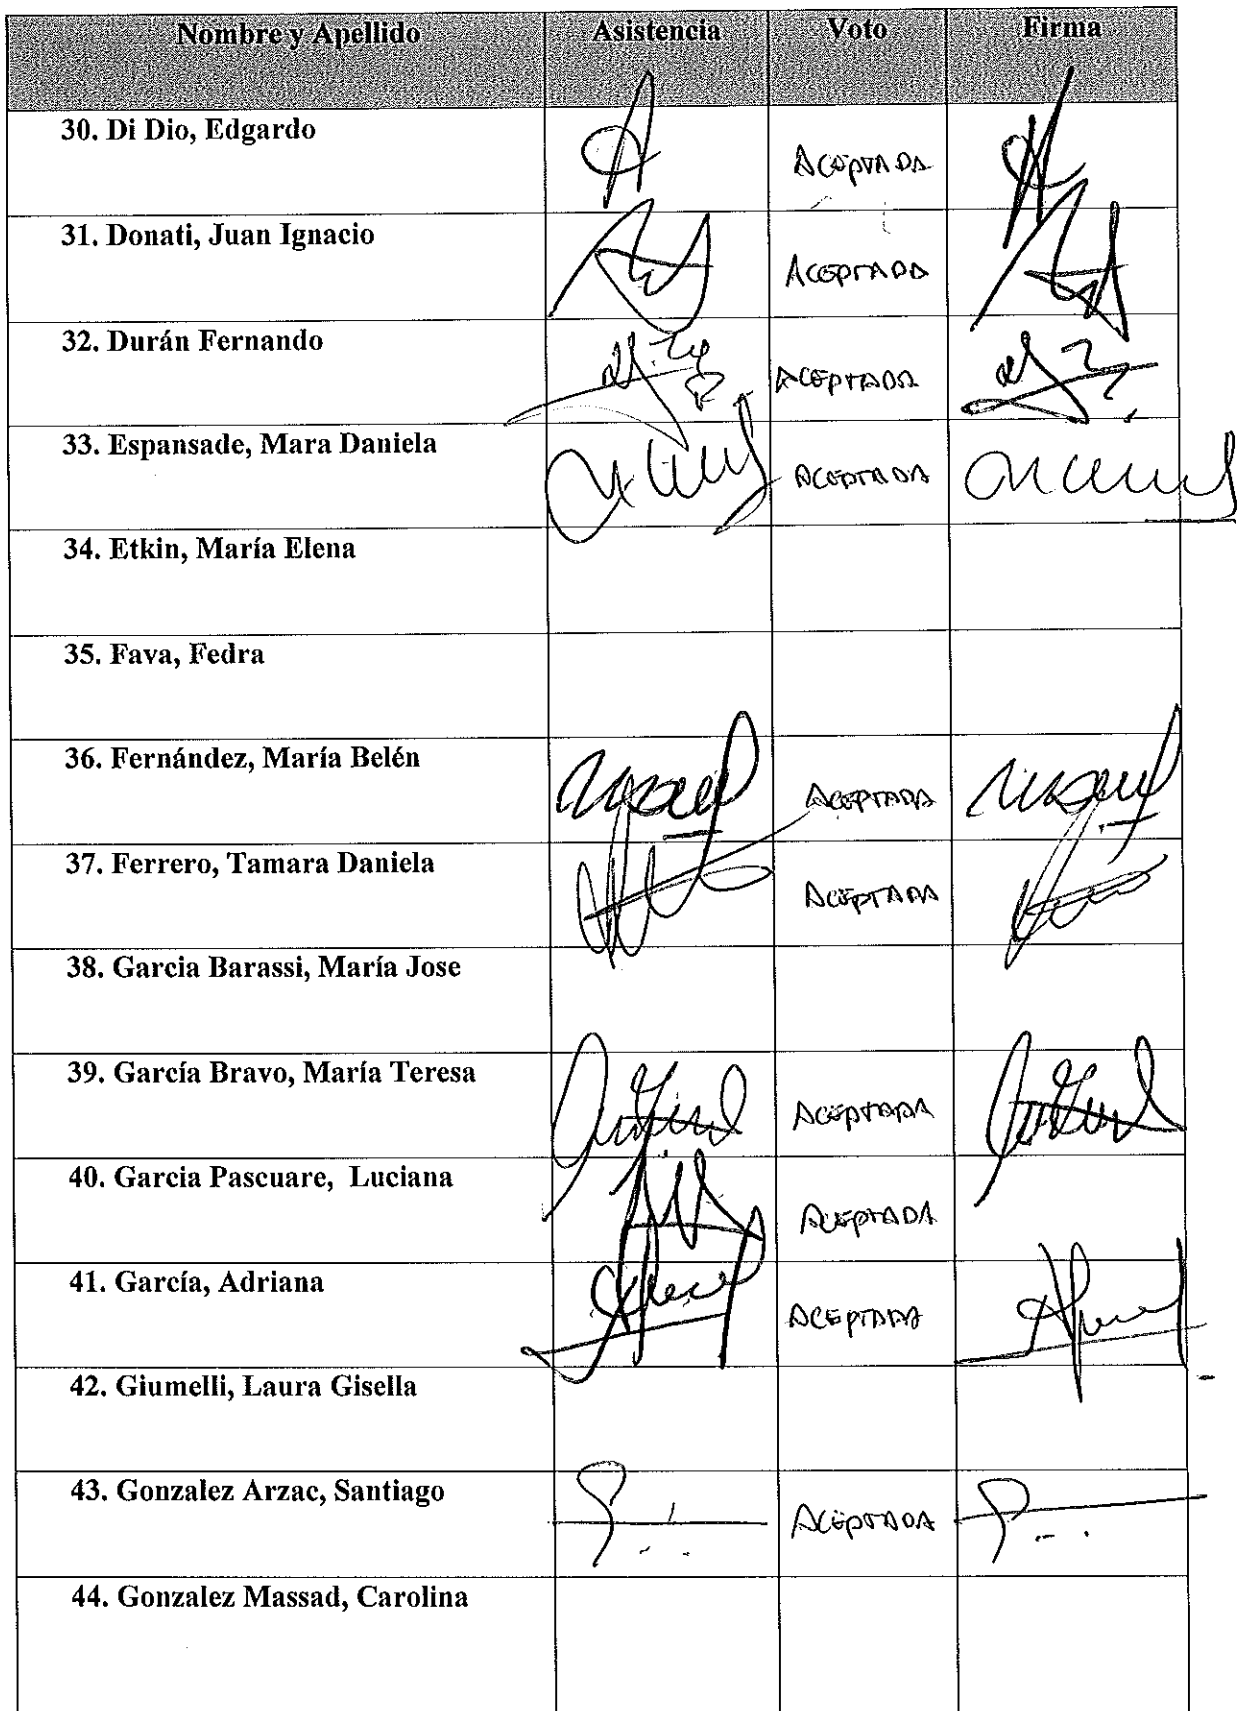 Nombre y Apellido Asistencia Voto Firma
30. Di Dio, Edgardo ACEPTADA
31. Donati, Juan Ignacio ACEPTADA
32. Durán Fernando ACEPTADA
33. Espansade, Mara Daniela ACEPTADA
34. Etkin, María Elena
35. Fava, Fedra
36. Fernández, María Belén ACEPTADA
37. Ferrero, Tamara Daniela ACEPTADA
38. Garcia Barassi, María Jose
39. García Bravo, María Teresa ACEPTADA
40. Garcia Pascuare, Luciana ACEPTADA
41. García, Adriana ACEPTADA
42. Giumelli, Laura Gisella
43. Gonzalez Arzac, Santiago ACEPTADA
44. Gonzalez Massad, Carolina